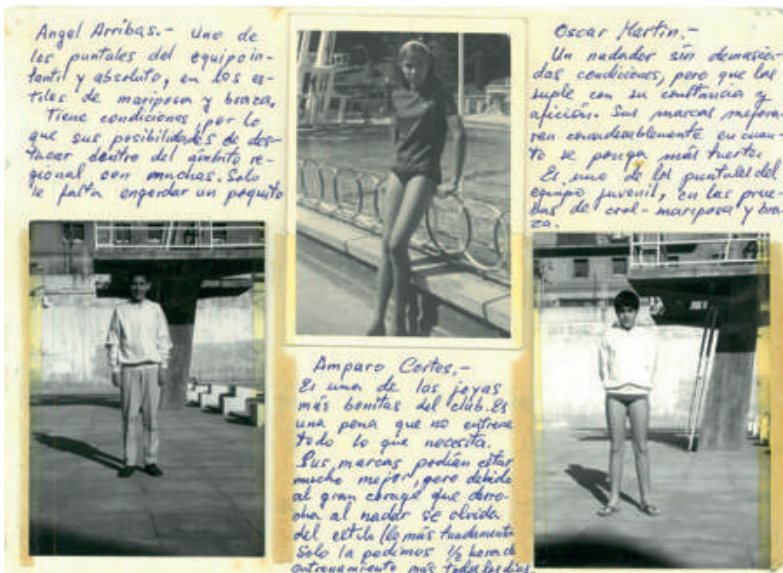 Angel Arribas.- Uno de
los puntales del equipo in-
fantil y absoluto, en los es-
tilos de mariposa y braza.
Tiene condiciones por lo
que sus posibilidades de des-
tacar dentro del ámbito re-
gional son muchas. Solo
le falta engordar un poquito
Amparo Cortes.-
Es una de las joyas
más bonitas del club. Es
una pena que no entrene
todo lo que necesita.
Sus marcas podían estar
mucho mejor, pero debido
al gran corage que derro-
cha al nadar se olvida
del estilo (lo más fundamental
Solo la pedimos 1/2 hora de
entrenamiento más todos los días.
Oscar Martin.-
Un nadador sin demasia-
das condiciones, pero que las
suple con su constancia y
afición. Sus marcas mejora-
ran considerablemente en cuan-
to se ponga más fuerte.
Es uno de los puntales del
equipo juvenil, en las prue-
bas de crol-mariposa y bra-
za.